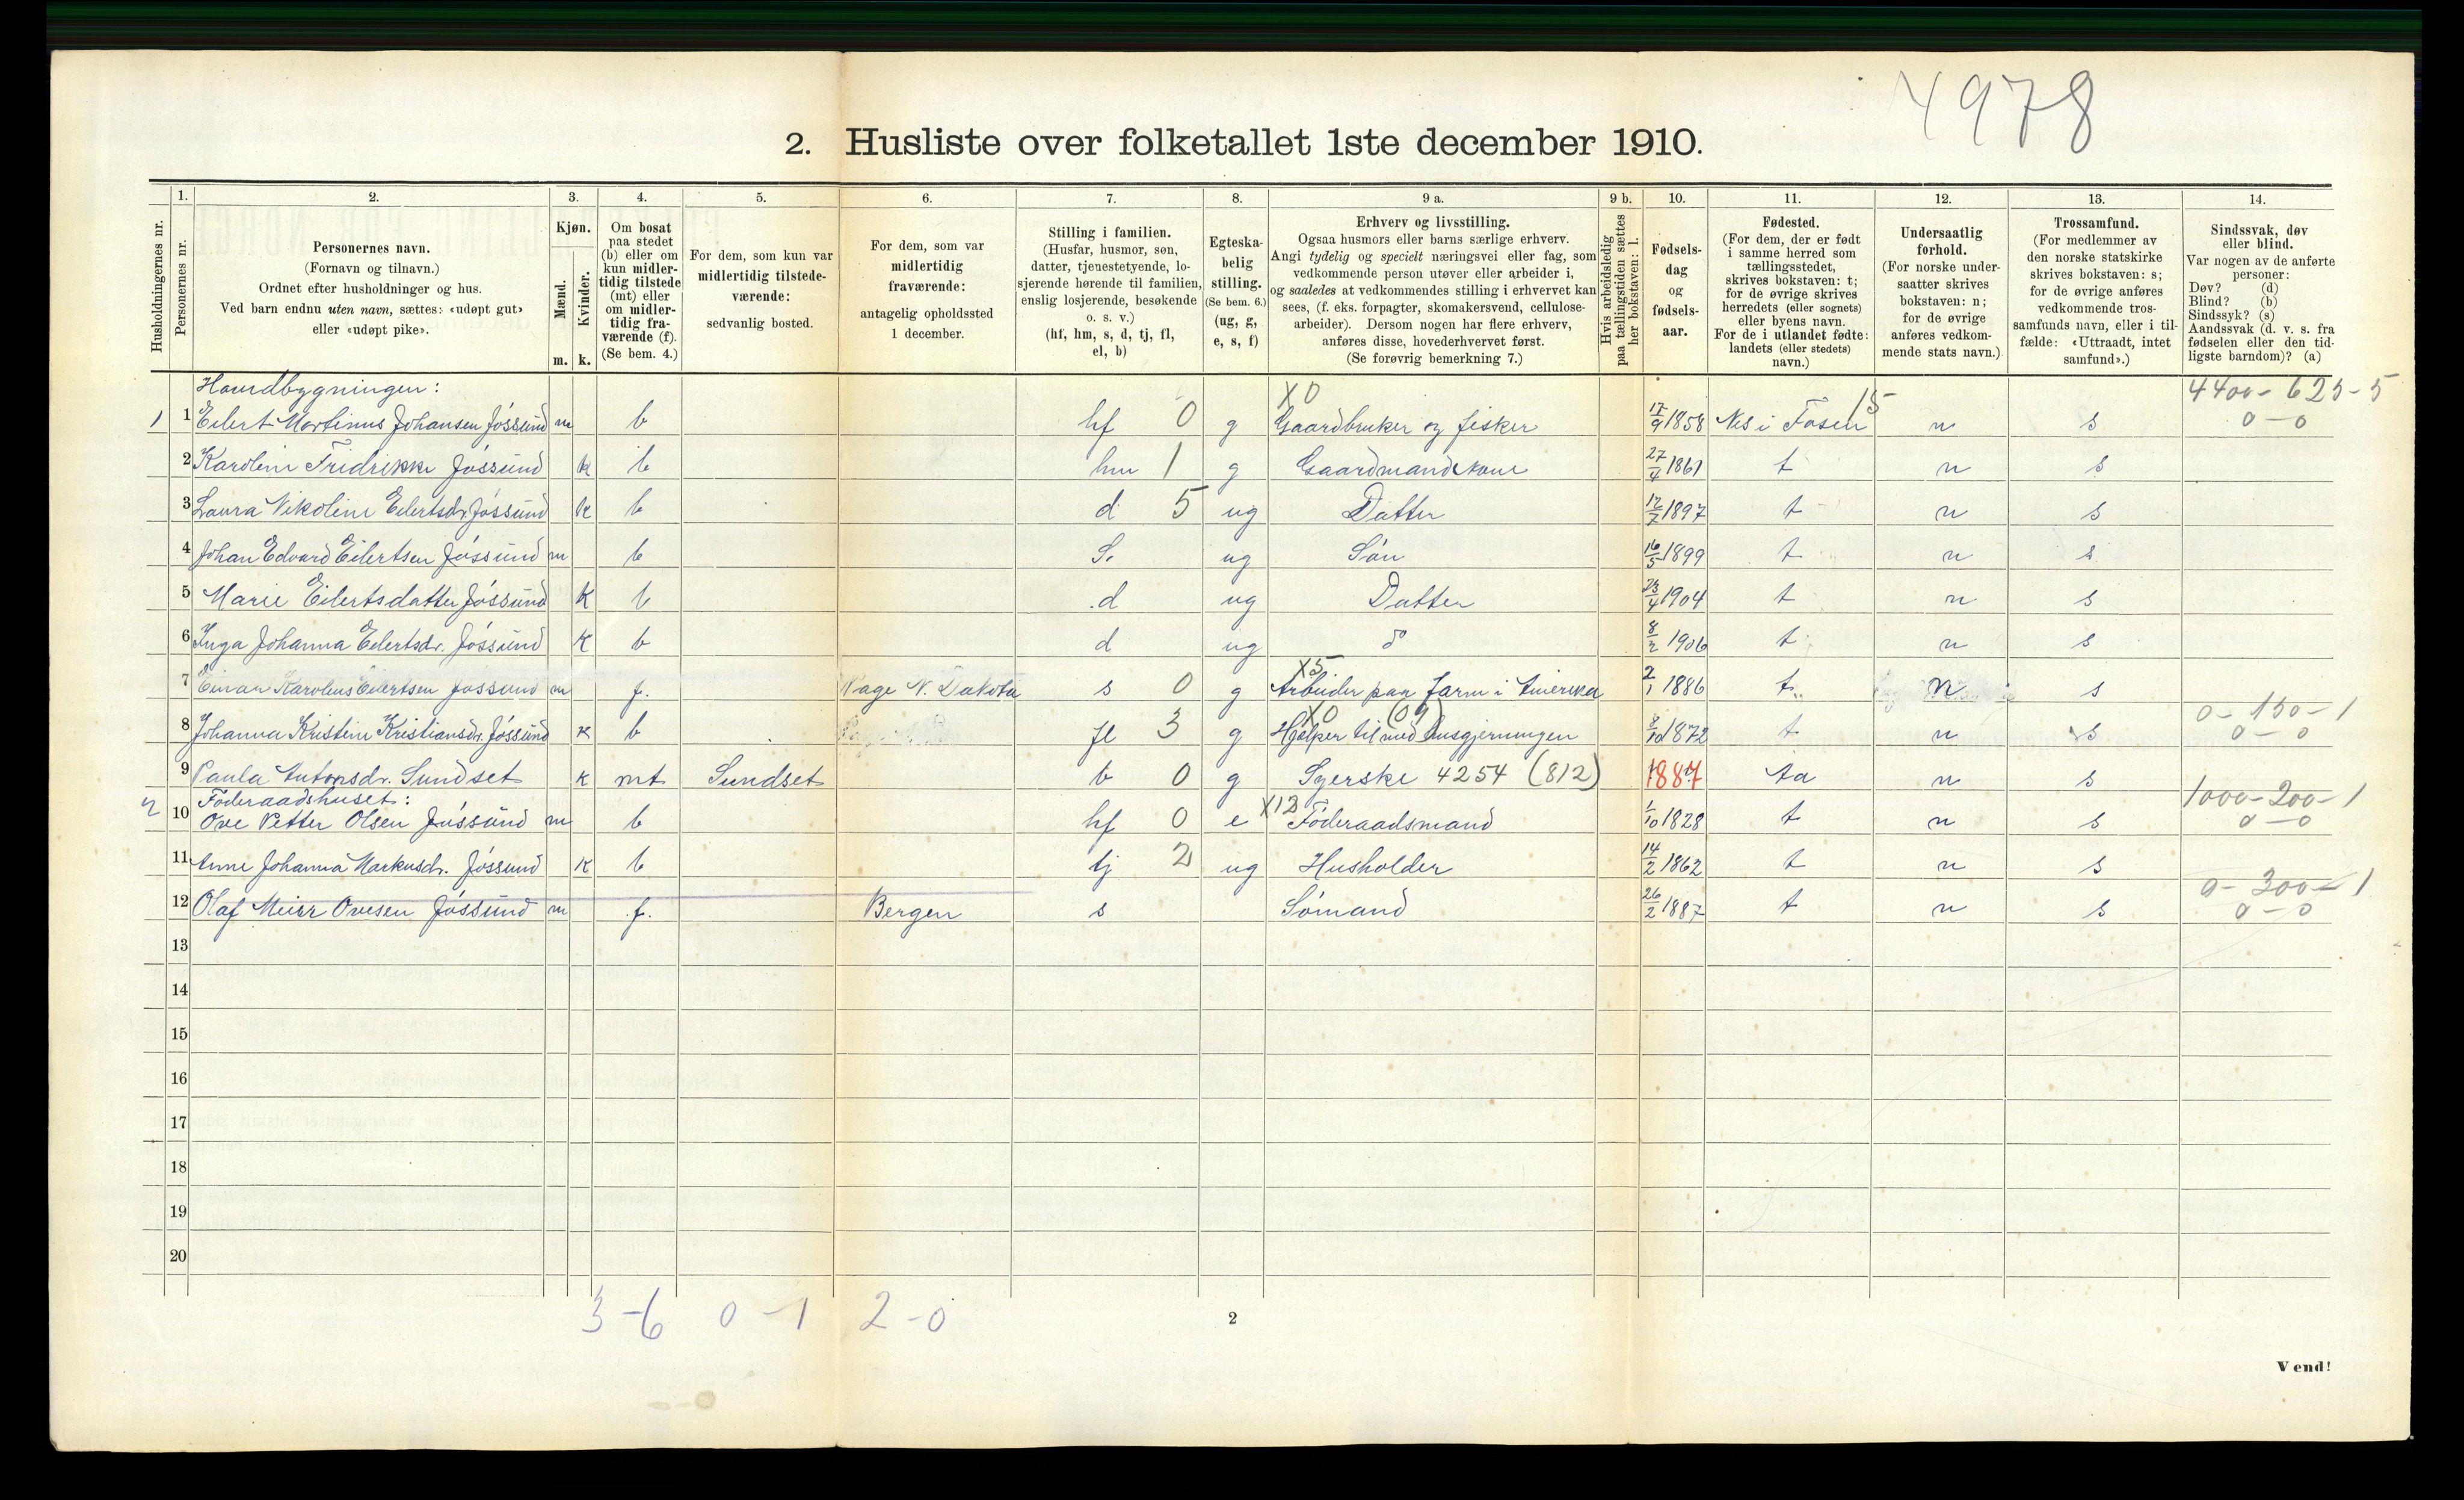 4978
2. Husliste over folketallet 1ste december 1910.
Husholdningernes nr.
1. Personernes nr.
2. Personernes navn. (Fornavn og tilnavn.) Ordnet efter husholdninger og hus. Ved barn endnu uten navn, sættes: «udøpt gut» eller «udøpt pike».
3. Kjøn. Mænd. m. Kvinder. k.
4. Om bosat paa stedet (b) eller om kun midlertidig tilstede (mt) eller om midlertidig fraværende (f). (Se bem. 4.)
5. For dem, som kun var midlertidig tilstedeværende: sedvanlig bosted.
6. For dem, som var midlertidig fraværende: antagelig opholdssted 1 december.
7. Stilling i familien. (Husfar, husmor, søn, datter, tjenestetyende, losjerende hørende til familien, enslig losjerende, besøkende o. s. v.) (hf, hm, s, d, tj, fl, el, b)
8. Egteskabelig stilling. (Se bem. 6.) (ug, g, e, s, f)
9 a. Erhverv og livsstilling. Ogsaa husmors eller barns særlige erhverv. Angi tydelig og specielt næringsvei eller fag, som vedkommende person utøver eller arbeider i, og saaledes at vedkommendes stilling i erhvervet kan sees, (f. eks. forpagter, skomakersvend, cellulosearbeider). Dersom nogen har flere erhverv, anføres disse, hovederhvervet først. (Se forøvrig bemerkning 7.)
9 b. Hvis arbeidsledig paa tællingstiden sættes her bokstaven: l.
10. Fødselsdag og fødselsaar.
11. Fødested. (For dem, der er født i samme herred som tællingsstedet, skrives bokstaven: t; for de øvrige skrives herredets (eller sognets) eller byens navn. For de i utlandet fødte: landets (eller stedets) navn.)
12. Undersaatlig forhold. (For norske undersaatter skrives bokstaven: n; for de øvrige anføres vedkommende stats navn.)
13. Trossamfund. (For medlemmer av den norske statskirke skrives bokstaven: s; for de øvrige anføres vedkommende trossamfunds navn, eller i tilfælde: «Uttraadt, intet samfund».)
14. Sindssvak, døv eller blind. Var nogen av de anførte personer: Døv? (d) Blind? (b) Sindssyk? (s) Aandssvak (d. v. s. fra fødselen eller den tidligste barndom)? (a)
Hovedbygningen: X0 15 4400-625-5
1 1 Eilert Martinus Johansen Jóssund m b hf 0 g Gaardbruker og fisker 17/9 1858 Nes i Fosen n s 0-0
2 Karoline Fridrikke Jóssund k b hm 1 g Gaardmandskone 27/4 1861 t n s
3 Laura Nikoline Eilertsdr. Jóssund k b d 5 ug Datter 12/7 1897 t n s
4 Johan Edvard Eilertsen Jóssund m b S. ug Són 16/5 1899 t n s
5 Marie Eilertsdatter Jóssund k b d ug Datter 23/4 1904 t n s
6 Inga Johanna Eilertsdr. Jóssund k b d ug do 8/2 1906 t n s
X5
7 Einar Karolius Eilertsen Jossund m f. Page N. Dakota s 0 g Arbeider paa farm i Amerika 2/1 1886 t n s
X0 (09) 0-150-1
8 Johanna Kristine Kristiansdr. Jóssund k b fl 3 g Hjælper til med husgjerningen 8/10 1872 t n s 0-0
9 Paula Antonsdr. Sundset k mt Sundset b 0 g Syerske 4254 (812) 1887 ta n s
Föderaadshuset: X12 1000-200-1
2 10 Ove Petter Olsen Jóssund m b hf 0 e Fóderaadsmand 1/10 1828 t n s 0-0
11 Anne Johanna Markusdr. Jóssund k b tj 2 ug Husholder 14/2 1862 t n s
0-300-1
12 Olaf Meier Ovesen Jóssund m f. Bergen s Sómand 26/2 1887 t n s 0-0
13
14
15
16
17
18
19
20
3-6 0-1 2-0
2
Vend!